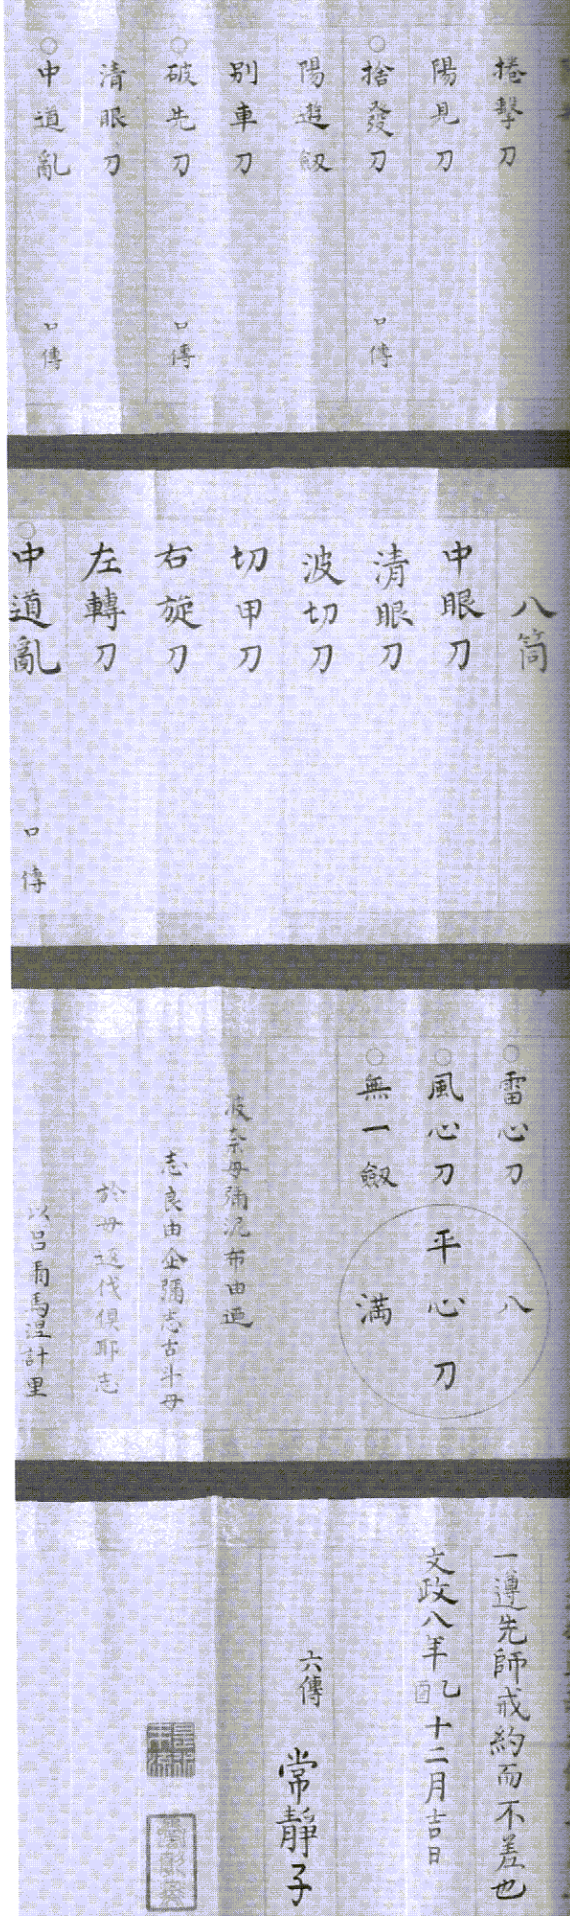 捲撃刀
陽見刀
○捨發刀 口傳
陽遊劔
別車刀
○破先刀 口傳
清眼刀
○中道亂 口傳
八箇
中眼刀
清眼刀
波切刀
切甲刀
右旋刀
左轉刀
○中道亂 口傳
○雷心刀 八
○風心刀 平心刀
○無一劔 満
波奈毋彌泥布由
志良由企彌志古斗毋
於毋返伐倶耶志
以呂爾馬涅計里
一遵先師戒約而不差也
文政八年乙酉十二月吉日
六傳 常靜子